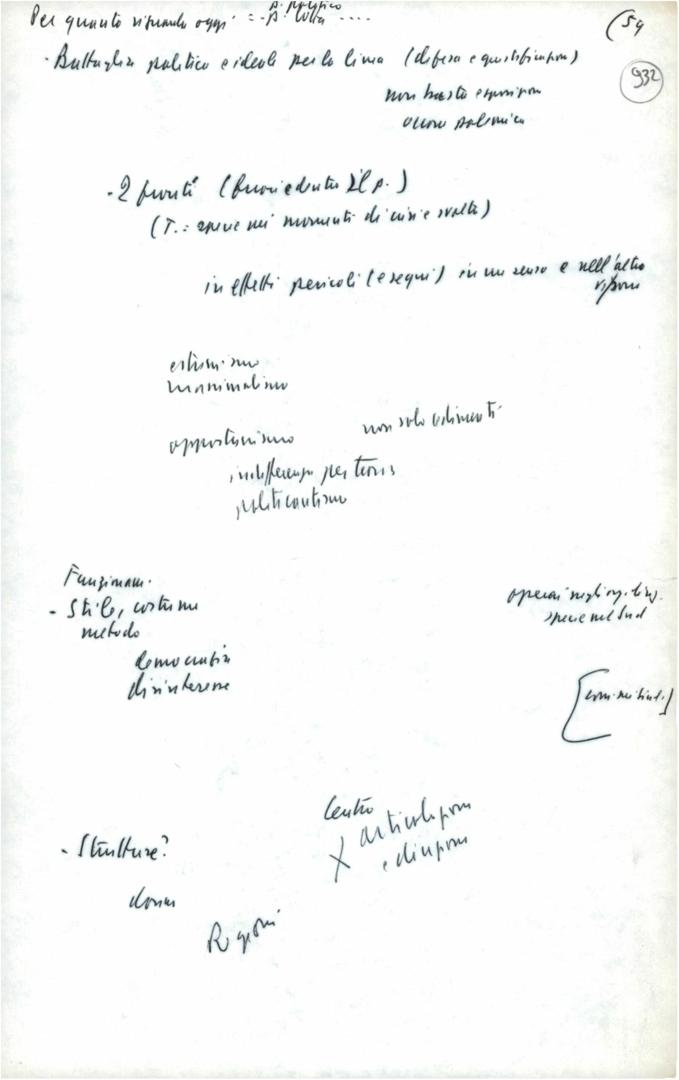 (54
Per quanto riguarda oggi: = p. politico
p. lotta ....
932
- Battaglia politica e ideale per la linea (difesa e giustificazione)
non basta esposizione
occorre polemica
- 2 fronti (fuori e dentro il p.)
(T.: specie nei momenti di crisi e svolta)
in effetti pericoli (e seguiti) in un senso e nell'altro
estremismo
massimalismo
opportunismo non solo cedimenti
indifferenza per teoria
politicantismo
Funzionam.
- Stile, costume
metodo
operai negli org. dirig.
specie nel Sud
democrazia
disinteresse
Centro
- Strutture?
X articolazione
e direzione
donne
Regioni